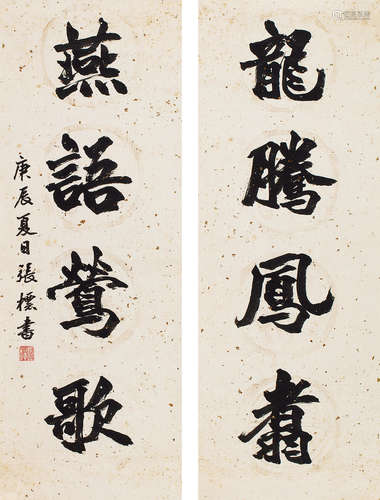 龍騰鳳翥
燕語鶯歌
庚辰夏日張標書